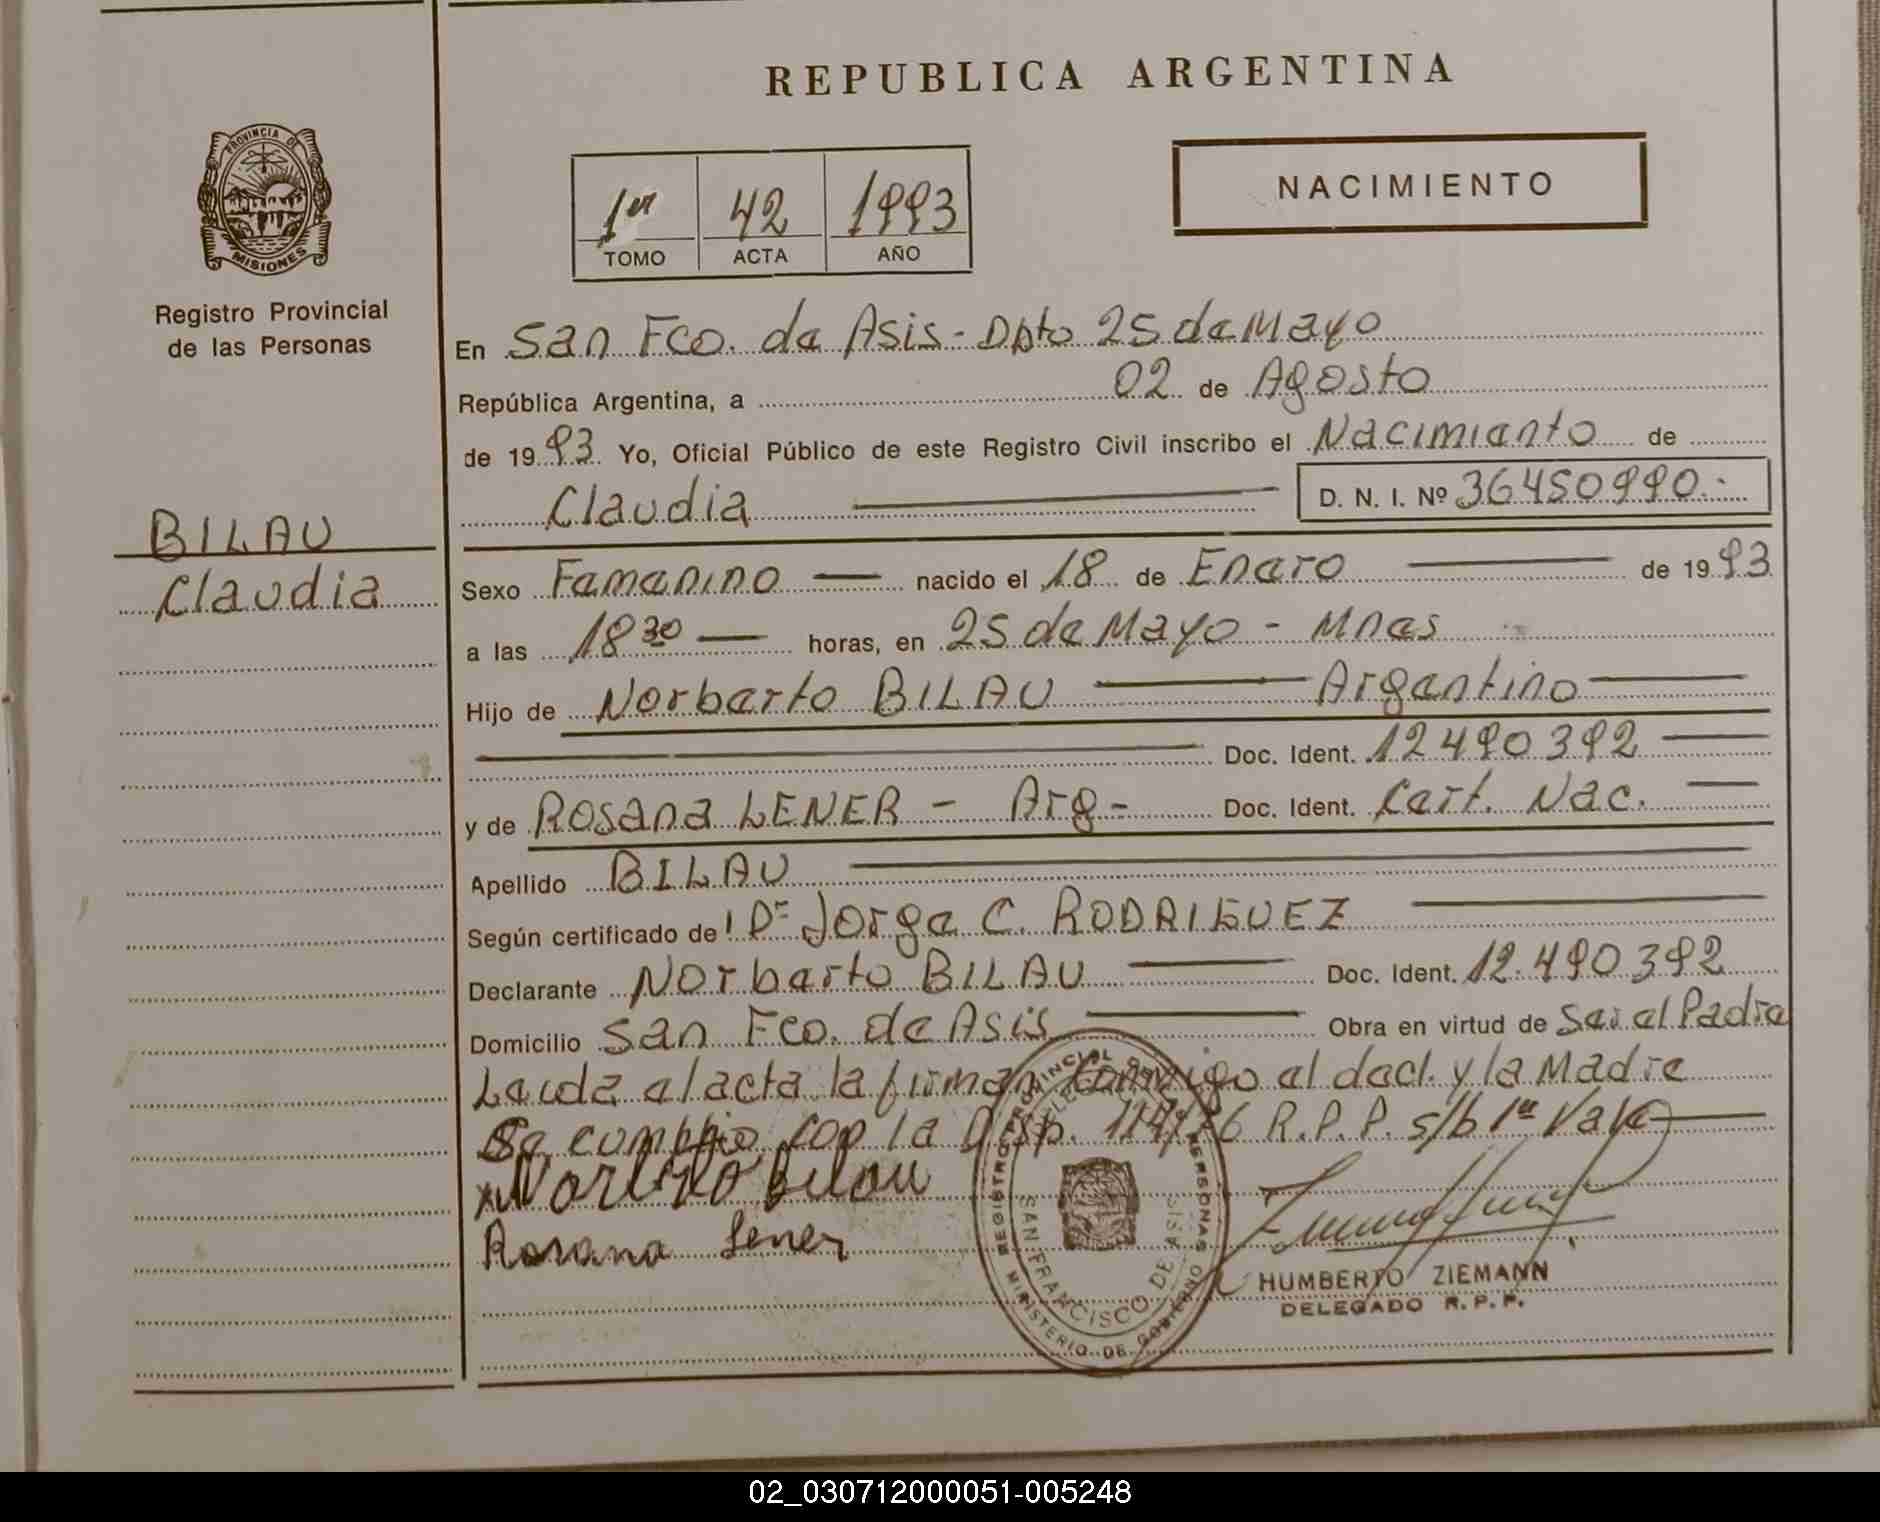 REPUBLICA ARGENTINA
PROVINCIA DE
MISIONES
Registro Provincial
de las Personas
1er 42 1993
TOMO ACTA AÑO
NACIMIENTO
En San Fco. de Asis - Dpto 25 de Mayo
República Argentina, a 02 de Agosto
de 1993 Yo, Oficial Público de este Registro Civil inscribo el Nacimiento de
Claudia D. N. I. Nº 36450990.-
BILAU
Claudia
Sexo Femenino nacido el 18 de Enero de 1993
a las 18 30 horas, en 25 de Mayo - Mnes
Hijo de Norberto BILAU Argentino
Doc. Ident. 12490392
y de Rosana LENER - Arg- Doc. Ident. Cert. Nac.
Apellido BILAU
Según certificado de Dr Jorge C. RODRIGUEZ
Declarante Norberto BILAU Doc. Ident. 12.490392
Domicilio San Fco. de Asis Obra en virtud de Ser el Padre
Leida el acta la firman conmigo el decl. y la Madre
Se cumplio con la Disp. R.P.P. s/b 1er Vale
Norberto Bilau
Rosana Lener
REGISTRO PROVINCIAL DE LAS PERSONAS
DELEGACION
SAN FRANCISCO DE ASIS
MINISTERIO DE GOBIERNO
HUMBERTO ZIEMANN
DELEGADO R.P.P.
02_030712000051-005248